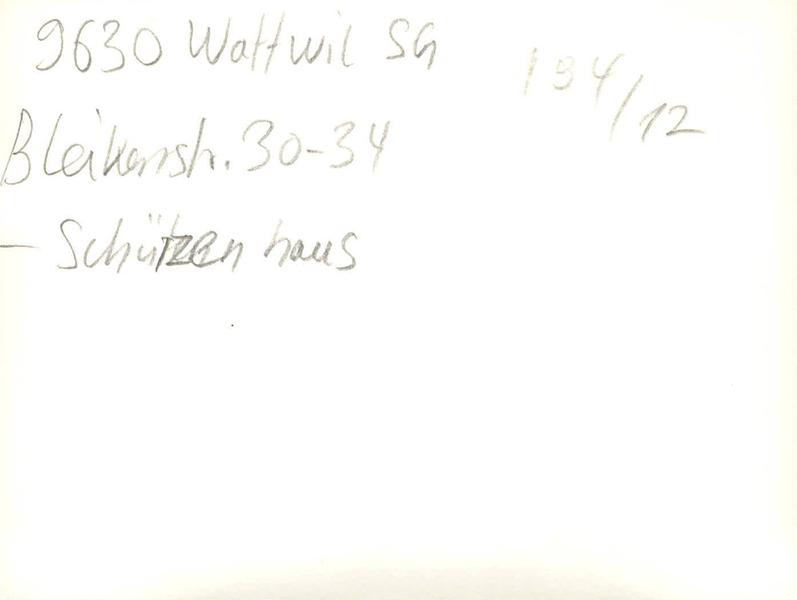 9630 Wattwil SG
194/12
Bleikenstr. 30-34
- Schützenhaus